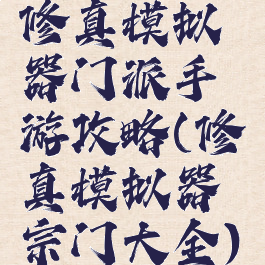 修真模拟
器门派手
游攻略(修
真模拟器
宗门大全)